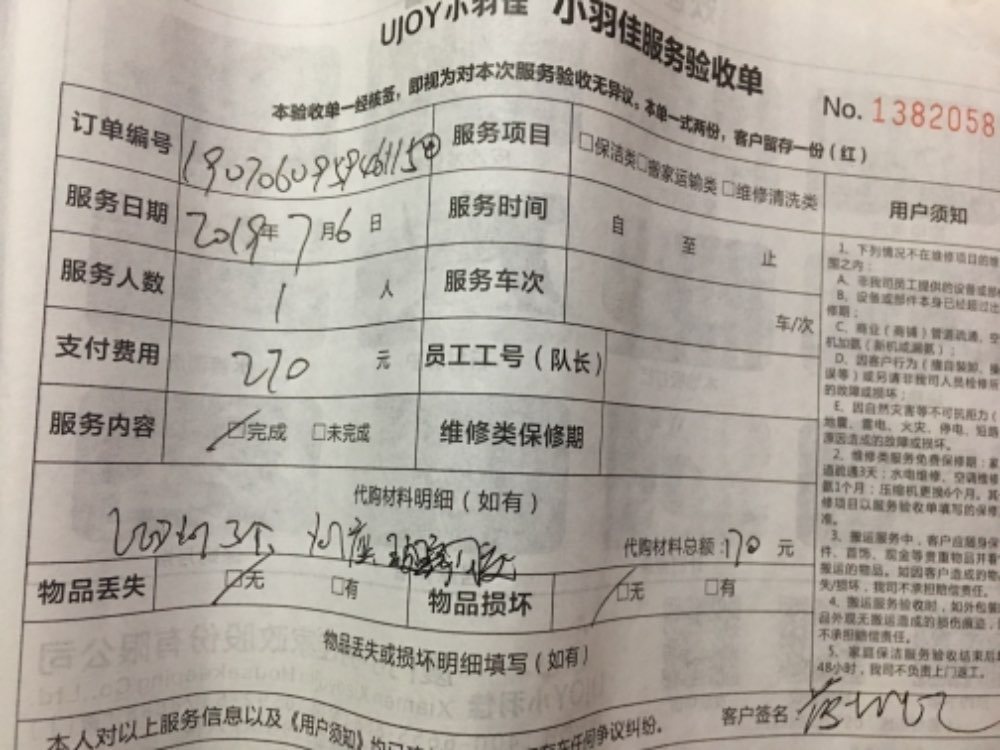 UJOY小羽佳 小羽佳服务验收单
本验收单一经核签，即视为对本次服务验收无异议。本单一式两份，客户留存一份（红）
No. 1382058
订单编号 服务项目 □保洁类□搬家运输类 □维修清洗类
服务日期 2019年7月6日 服务时间 自 至 止
服务人数 1 人 服务车次 车/次
支付费用 270 元 员工工号（队长）
服务内容 □完成 □未完成 维修类保修期
代购材料明细（如有）
3个 灯座
代购材料总额：170 元
物品丢失 □无 □有 物品损坏 □无 □有
物品丢失或损坏明细填写（如有）
本人对以上服务信息以及《用户须知》均已
在任何争议纠纷。
客户签名：
用户须知
1、下列情况不在维修项目的维
围之内：
A、非我司员工提供的设备或部
B、设备或部件本身已经超过出
修期；
C、商业（商铺）管道疏通、空
机加氨（新机或漏氨）；
D、因客户行为（擅自装卸、操
误等）或另请非我司人员检修所
的故障或损坏；
E、因自然灾害等不可抗拒力（
地震、雷电、火灾、停电、短路
原因造成的故障或损坏。
2、维修类服务免费保修期：
道疏通3天；水电维修、空调维修
1个月；压缩机更换6个月。其
修项目以服务验收单填写的保修
准。
3、搬运服务中，客户应随身保
件、首饰、现金等贵重物品并看
搬运的物品。如因客户造成的物
失/损坏，我司不承担赔偿责任。
4、搬运服务验收时，如外包装
品外观无搬运造成的损伤痕迹，
不承担赔偿责任。
5、家庭保洁服务验收结束后超
48小时，我司不负责上门返工。